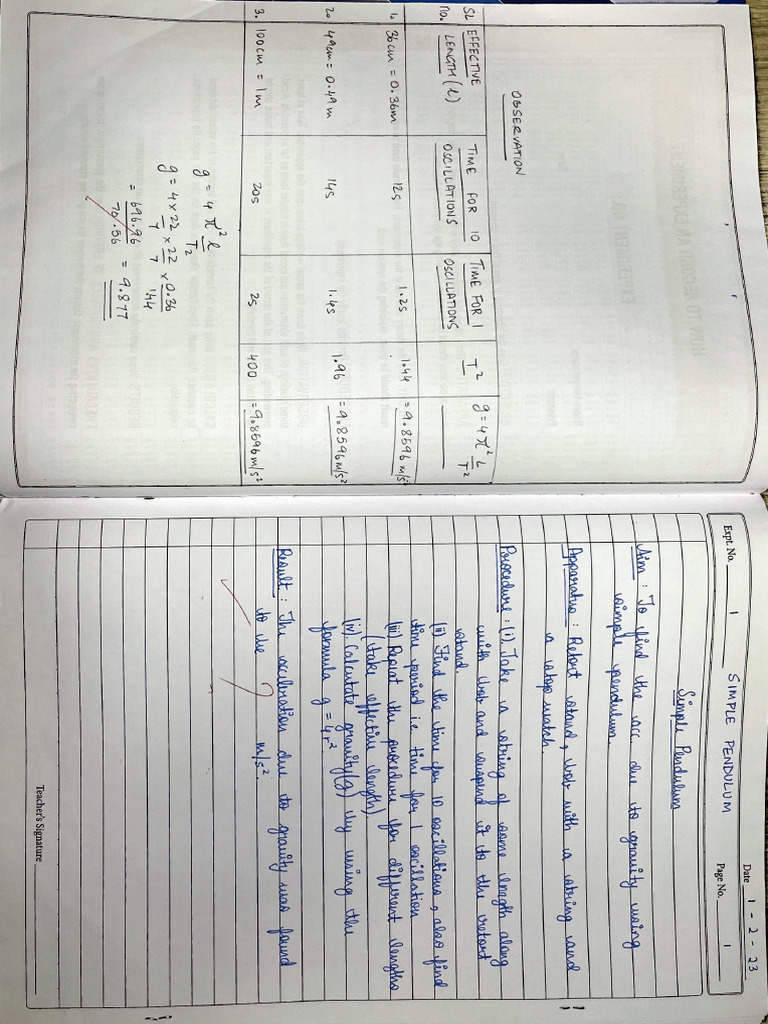 OBSERVATION
SL NO. EFFECTIVE LENGTH (l) TIME FOR 10 OSCILLATIONS TIME FOR 1 OSCILLATIONS T² g = 4π² L/T²
1. 36cm = 0.36m 12s 1.2s 1.44 = 9.8596 m/s²
2. 49cm = 0.49m 14s 1.4s 1.96 = 9.8596 m/s²
3. 100cm = 1m 20s 2s 400 = 9.8596 m/s²
g = 4 π² l/T²
g = 4 × 22/7 × 22/7 × 0.36/1.44
= 696.96/70.56 = 9.877
Date 1-2-23
Expt. No. 1 SIMPLE PENDULUM Page No. 1
Simple Pendulum
Aim : To find the acc due to gravity using
simple pendulum.
Apparatus : Retort stand, bob with a string and
a stop watch.
Procedure : (i). Take a string of some length along
with bob and suspend it to the retort
stand.
(ii) Find the time for 10 oscillations, also find
time period i.e. time for 1 oscillation
(iii) Repeat the procedure for different lengths
(take effective length).
(iv). Calculate gravity(g) by using the
formula g = 4r²
Result : The acceleration due to gravity was found
to be ? m/s².
Teacher's Signature